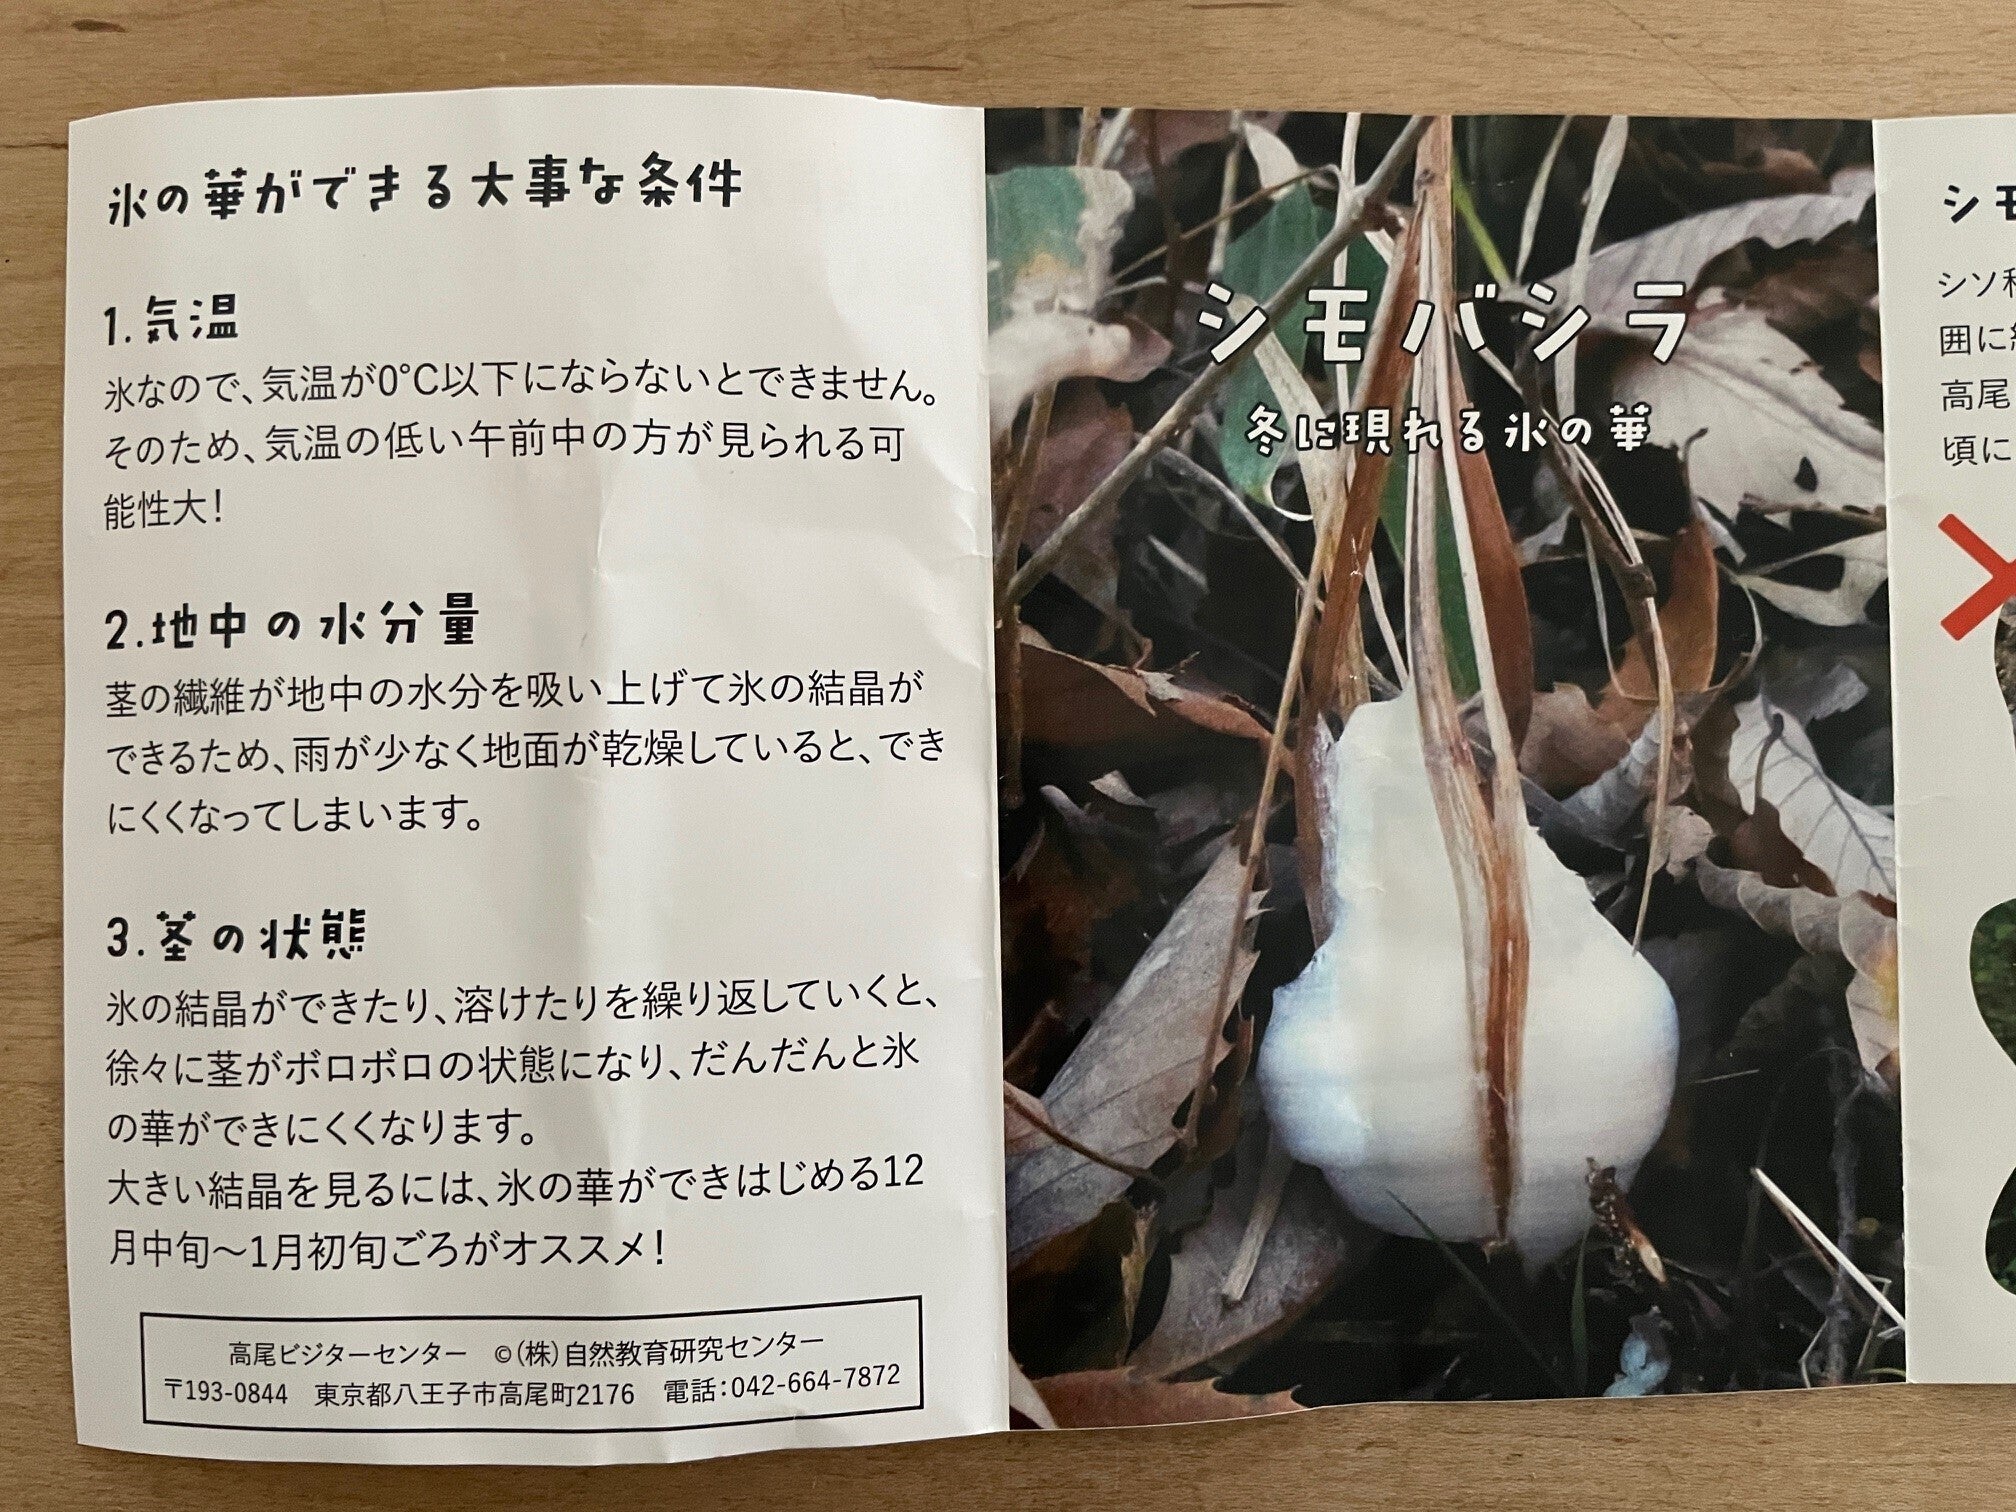 氷の華ができる大事な条件
1.気温
氷なので、気温が0℃以下にならないとできません。
そのため、気温の低い午前中の方が見られる可
能性大！
2.地中の水分量
茎の繊維が地中の水分を吸い上げて氷の結晶が
できるため、雨が少なく地面が乾燥していると、でき
にくくなってしまいます。
3.茎の状態
氷の結晶ができたり、溶けたりを繰り返していくと、
徐々に茎がボロボロの状態になり、だんだんと氷
の華ができにくくなります。
大きい結晶を見るには、氷の華ができはじめる12
月中旬～1月初旬ごろがオススメ！
高尾ビジターセンター ©（株）自然教育研究センター
〒193-0844 東京都八王子市高尾町2176 電話：042-664-7872
シモバシラ
冬に現れる氷の華
シモ
シソ科
囲に
高尾
頃に